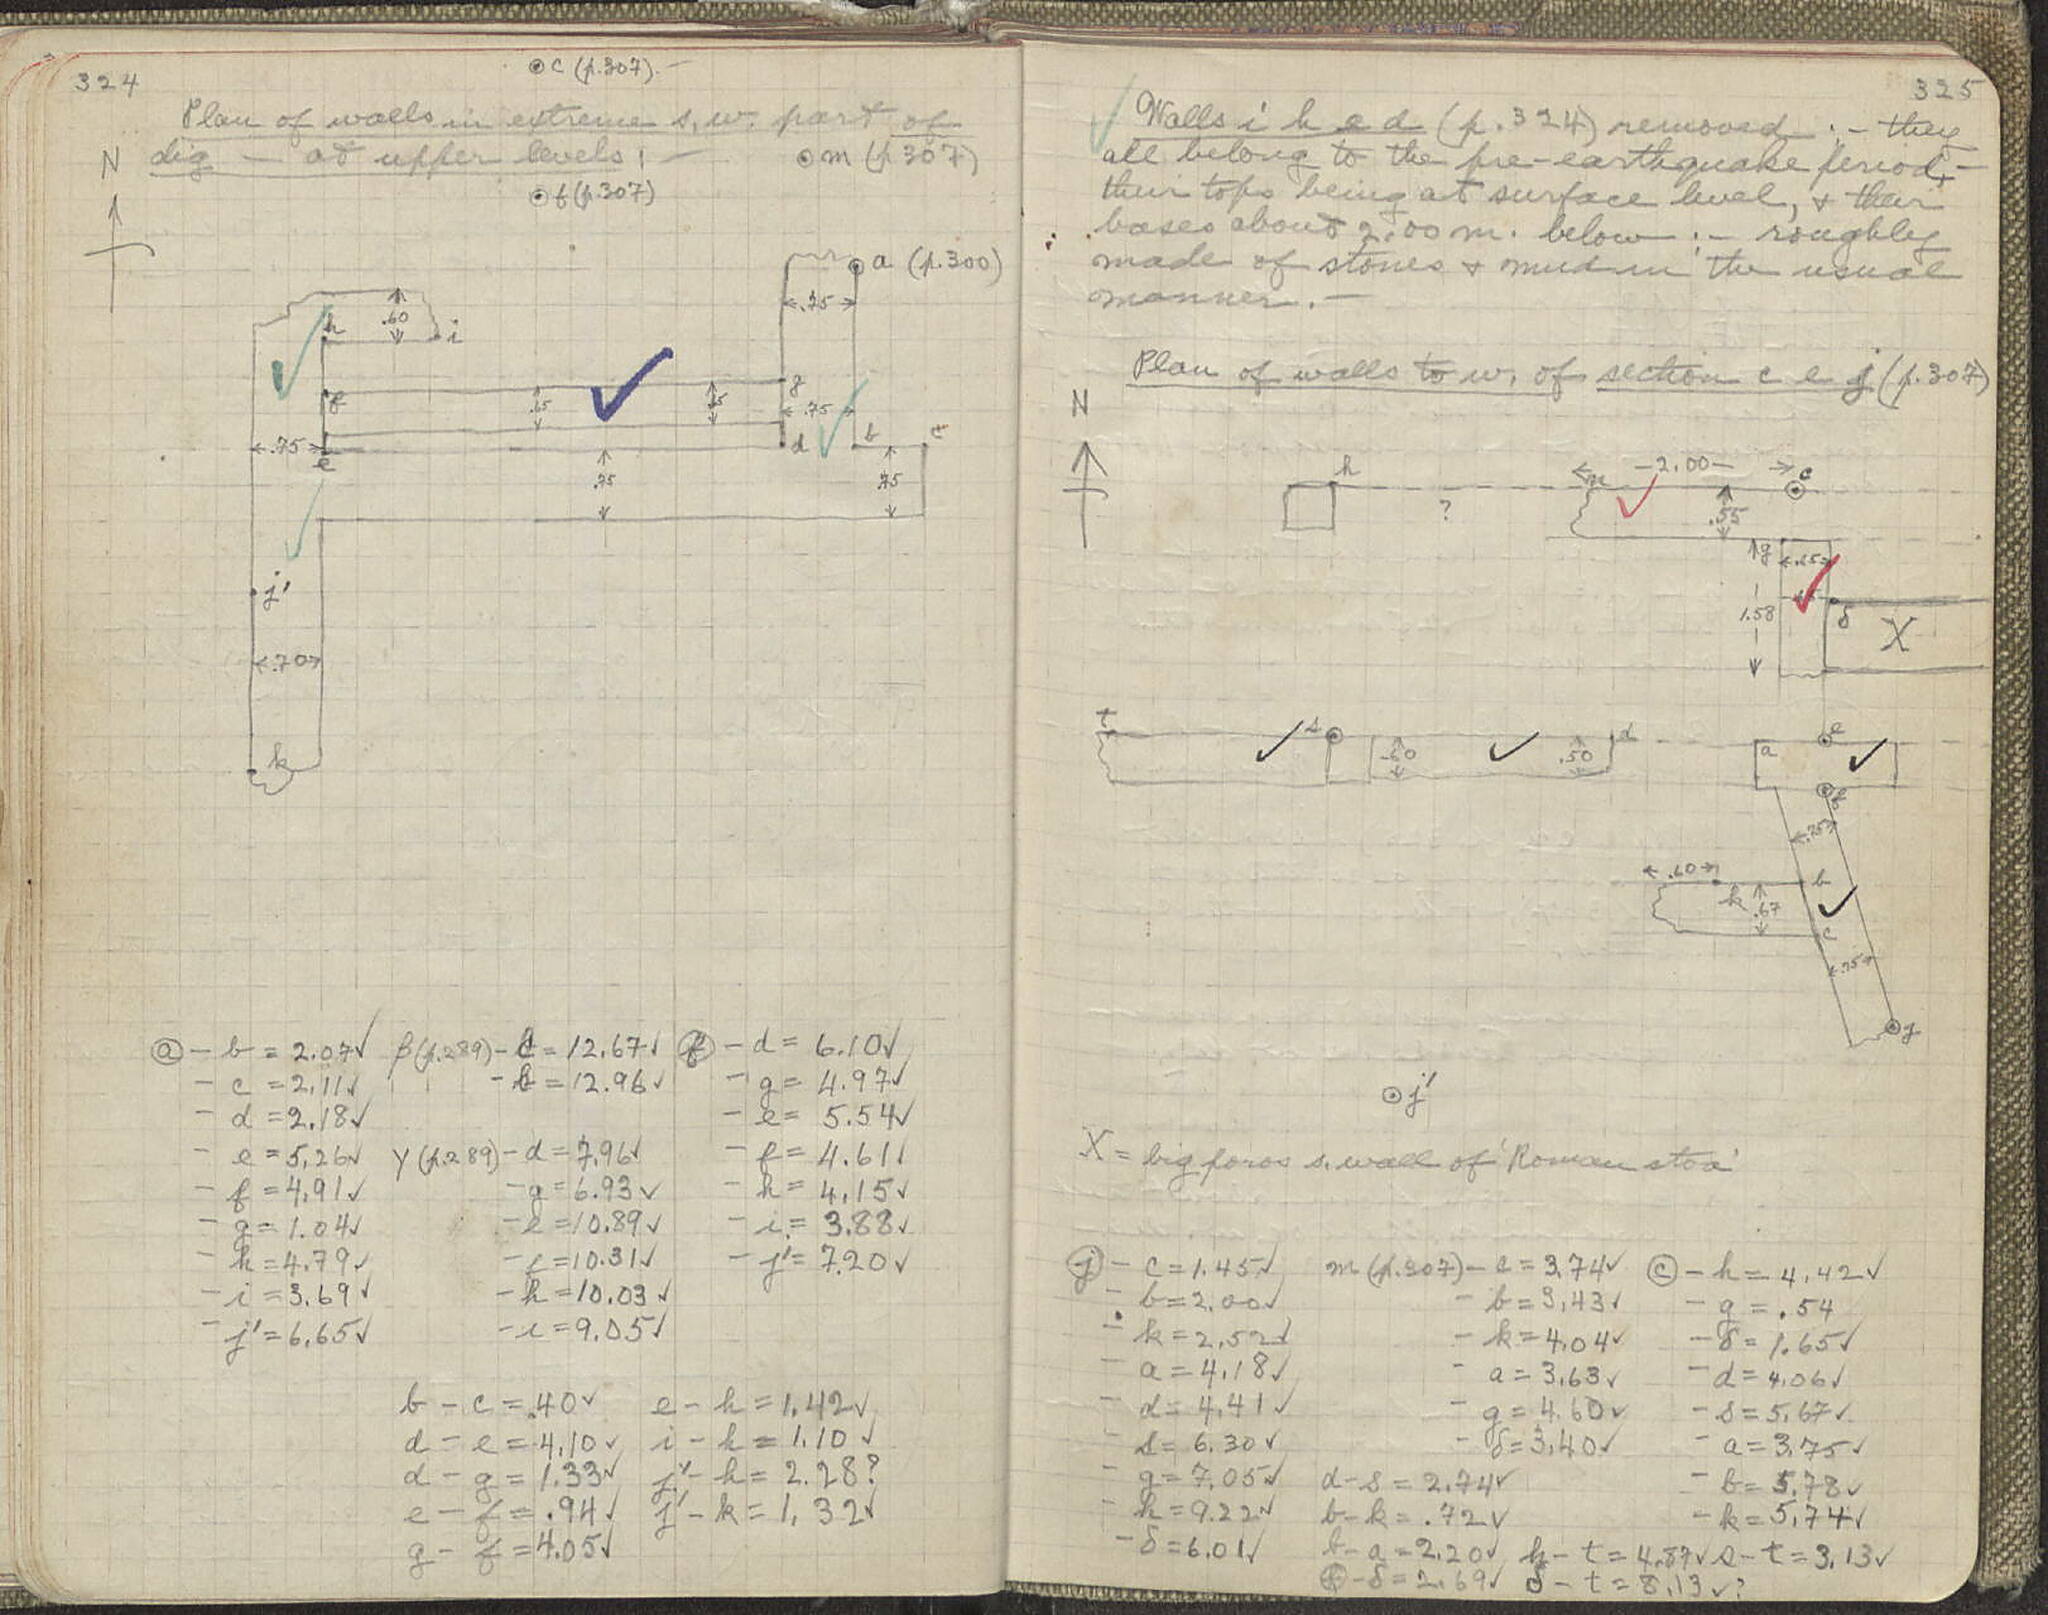 324
⊙ c (p.307). —
Plan of walls in extreme s.w. part of
dig — at upper levels: —
⊙ m (p.307)
⊙ f (p.307)
N
⊙ a (p.300)
.75
.60
h
i
g
f
.65
.75
.75
e
d
b
c
.75
.75
j'
.70
k
ⓐ — b = 2.07✓
— c = 2.11✓
— d = 2.18✓
— e = 5.26✓
— f = 4.91✓
— g = 1.04✓
— h = 4.79✓
— i = 3.69✓
— j' = 6.65✓
β (p.289) — = 12.67✓
— = 12.96✓
γ (p.289) — d = 7.96✓
— g = 6.93✓
— e = 10.89✓
— f = 10.31✓
— h = 10.03✓
— i = 9.05✓
ⓕ — d = 6.10✓
— g = 4.97✓
— e = 5.54✓
— f = 4.61✓
— h = 4.15✓
— i = 3.88✓
— j' = 7.20✓
b — c = .40✓
d — e = 4.10✓
d — g = 1.33✓
e — f = .94✓
g — f = 4.05✓
e — h = 1.42✓
i — h = 1.10✓
j' — h = 2.28?
j' — k = 1.32✓
325
✓ Walls i h e d (p.324) removed :— they
all belong to the pre-earthquake period, —
their tops being at surface level, & their
bases about 2.00 m. below :— roughly
made of stones & mud in the usual
manner. —
Plan of walls to w. of section c e j (p.307)
N
h
?
n
— 2.00 —
c
.55
g
.65
1.58
δ
X
t
s
.50
.50
d
a
e
f
.75
.60
k
b
.67
c
.75
j
⊙ j'
X = big poros s. wall of 'Roman stoa'
ⓙ — c = 1.45✓
— b = 2.00✓
— k = 2.52✓
— a = 4.18✓
— d = 4.41✓
— s = 6.30✓
— g = 7.05✓
— h = 9.22✓
— δ = 6.01✓
m (p.307) — c = 3.74✓
— b = 3.43✓
— k = 4.04✓
— a = 3.63✓
— g = 4.60✓
— δ = 3.40✓
d — s = 2.74✓
b — k = .72✓
b — a = 2.20✓
— δ = 2.69✓
ⓒ — h = 4.42✓
— g = .54
— δ = 1.65✓
— d = 4.06✓
— s = 5.67✓
— a = 3.75✓
— b = 5.78✓
— k = 5.74✓
h — t = 4.87✓ s — t = 3.13✓
δ — t = 8.13✓?